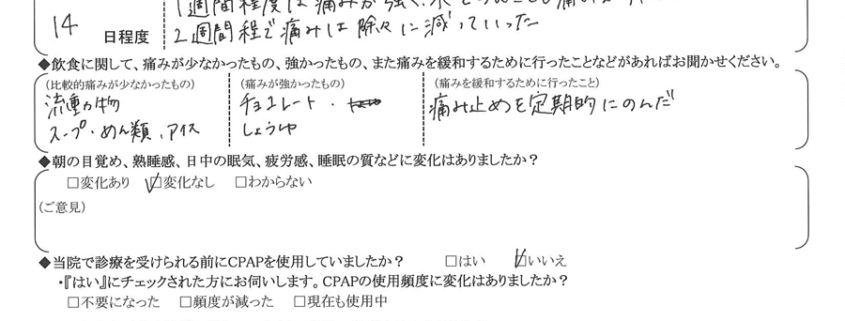 1週間程度は痛みが強く、
14 日程度
2週間程で痛みは除々に減っていった
◆飲食に関して、痛みが少なかったもの、強かったもの、また痛みを緩和するために行ったことなどがあればお聞かせください。
(比較的痛みが少なかったもの) (痛みが強かったもの) (痛みを緩和するために行ったこと)
流動物 チョコレート・ 痛み止めを定期的にのんだ
スープ・めん類、アイス しょうゆ
◆朝の目覚め、熟睡感、日中の眠気、疲労感、睡眠の質などに変化はありましたか？
□変化あり ☑変化なし □わからない
(ご意見)
◆当院で診療を受けられる前にCPAPを使用していましたか？ □はい ☑いいえ
・『はい』にチェックされた方にお伺いします。CPAPの使用頻度に変化はありましたか？
□不要になった □頻度が減った □現在も使用中